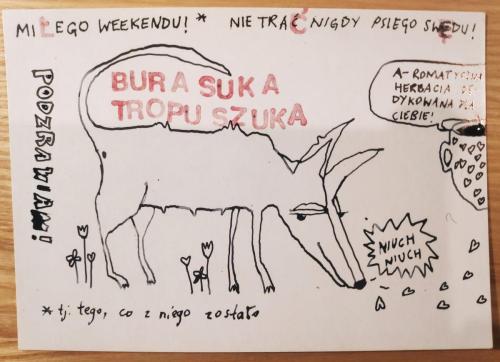 MIŁEGO WEEKENDU! * NIE TRAĆ NIGDY PSIEGO SWĘDU!
PODZRAWIAM!
BURA SUKA
TROPU SZUKA
A-ROMATYCZNA
HERBACIA DE
DYKOWANA DLA
CIEBIE!
NIUCH
NIUCH
* tj. tego, co z niego zostało